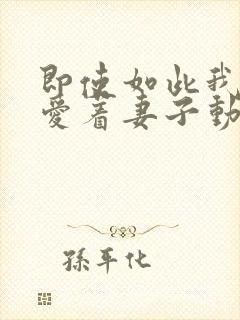 即使如此我
愛着妻子動
孫平化